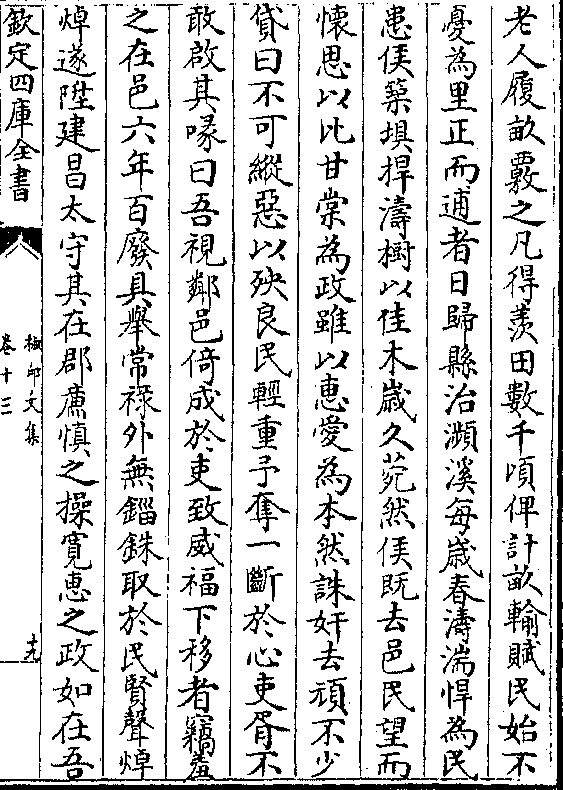 老人履畝覈之凡得羡田數千頃俾計畝輸賦民始不
憂為里正而逋者日歸縣治瀕溪每歳春濤湍悍為民
患侯築埧捍濤樹以佳木歳久菀然侯既去邑民望而
懷思以比甘棠為政雖以惠愛為本然誅奸去頑不少
貸曰不可縱惡以殃良民輕重予奪一斷於心吏胥不
敢啟其喙曰吾視鄰邑倚成於吏致威福下移者竊羞
之在邑六年百廢具舉常禄外無錙銖取於民賢聲焯
焯遂陞建昌太守其在郡亷慎之操寛惠之政如在吾
欽定四庫全書
卷十三
文集